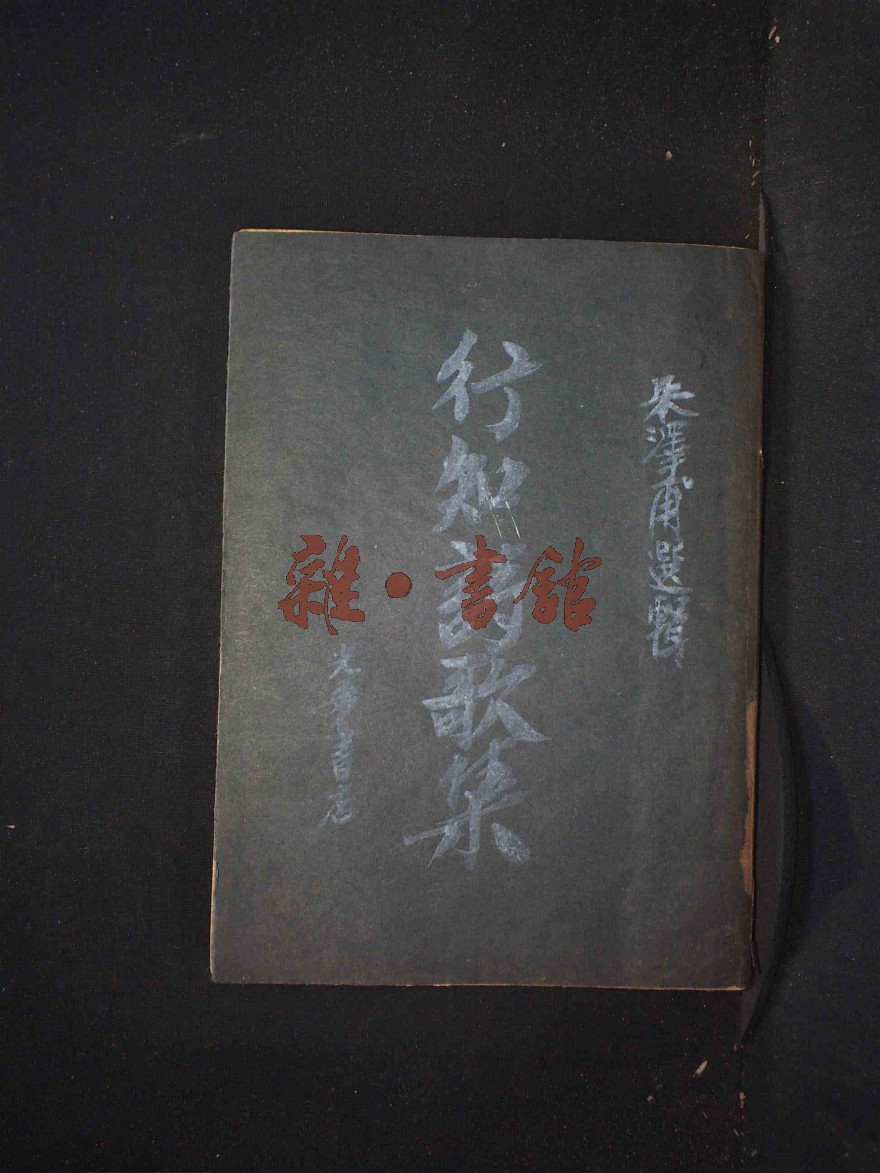 朱澤甫選輯
行知詩歌集
光華書店
雜·書館